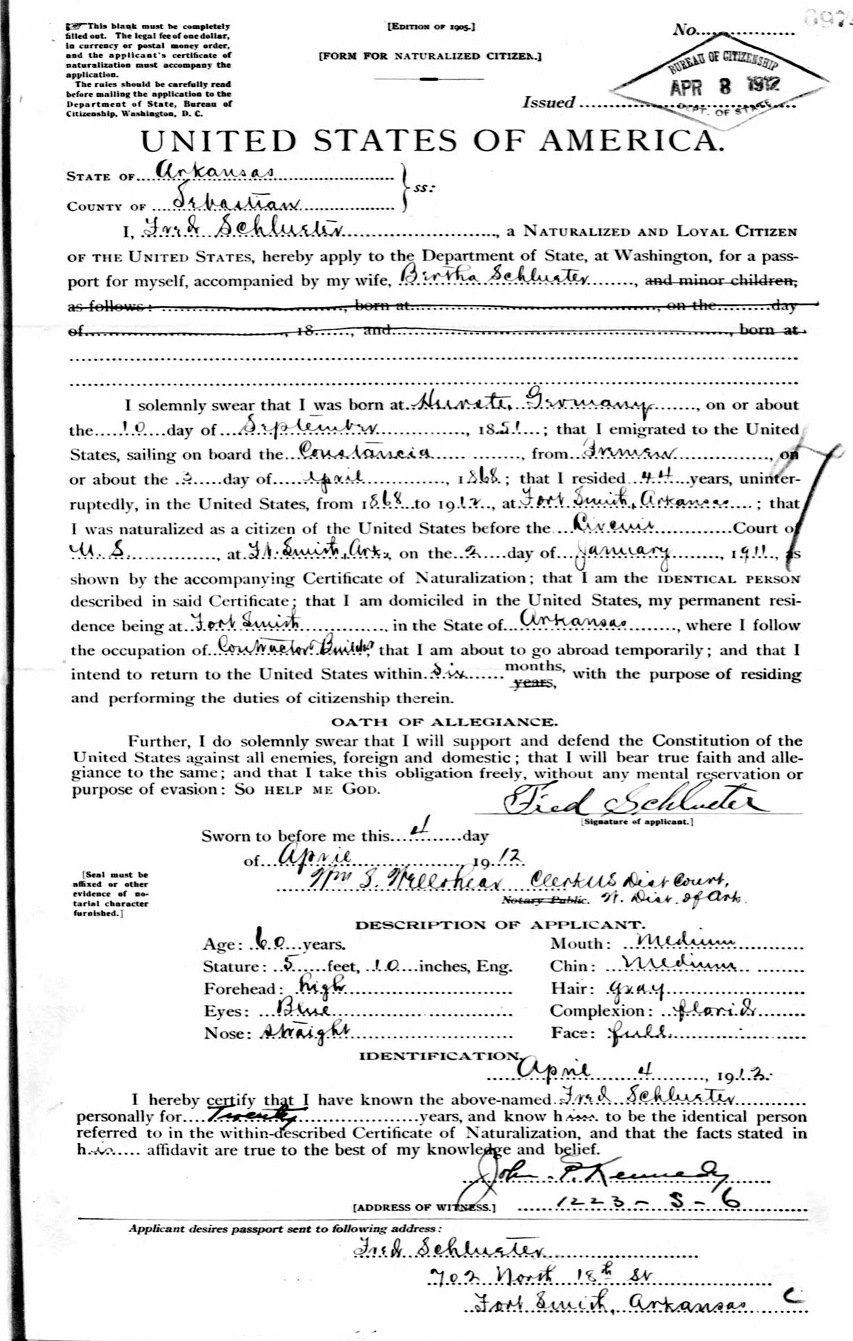 ☞ This blank must be completely
filled out. The legal fee of one dollar,
in currency or postal money order,
and the applicant's certificate of
naturalization must accompany the
application.
The rules should be carefully read
before mailing the application to the
Department of State, Bureau of
Citizenship, Washington, D. C.
[EDITION OF 1905.]
[FORM FOR NATURALIZED CITIZEN.]
No.
BUREAU OF CITIZENSHIP
APR 8 1912
DEPT. OF STATE
Issued
UNITED STATES OF AMERICA.
STATE OF Arkansas
COUNTY OF Sebastian
ss:
I, Fred Schlueter, a NATURALIZED AND LOYAL CITIZEN
OF THE UNITED STATES, hereby apply to the Department of State, at Washington, for a pass-
port for myself, accompanied by my wife, Bertha Schlueter, and minor children,
as follows: , born at , on the day
of , 18 , and , born at
I solemnly swear that I was born at , Germany, on or about
the 10 day of September, 1851; that I emigrated to the United
States, sailing on board the , from , on
or about the 3 day of April, 1868; that I resided 44 years, uninter-
ruptedly, in the United States, from 1868 to 1912, at Fort Smith, Arkansas; that
I was naturalized as a citizen of the United States before the Circuit Court of
U. S., at Ft. Smith, Ark, on the 2 day of January, 1911, as
shown by the accompanying Certificate of Naturalization; that I am the IDENTICAL PERSON
described in said Certificate; that I am domiciled in the United States, my permanent resi-
dence being at Fort Smith, in the State of Arkansas, where I follow
the occupation of Contractor Builder; that I am about to go abroad temporarily; and that I
intend to return to the United States within six months, years, with the purpose of residing
and performing the duties of citizenship therein.
OATH OF ALLEGIANCE.
Further, I do solemnly swear that I will support and defend the Constitution of the
United States against all enemies, foreign and domestic; that I will bear true faith and alle-
giance to the same; and that I take this obligation freely, without any mental reservation or
purpose of evasion: SO HELP ME GOD.
Fred Schlueter
[Signature of applicant.]
Sworn to before me this 4 day
of April, 1912
[Seal must be
affixed or other
evidence of no-
tarial character
furnished.]
Wm S. Wellshear Clerk US Dist Court,
Notary Public. W. Dist. of Ark.
DESCRIPTION OF APPLICANT.
Age: 60 years.
Mouth: Medium
Stature: 5 feet, 10 inches, Eng.
Chin: Medium
Forehead: high
Hair: gray
Eyes: Blue
Complexion: florid
Nose: straight
Face: full
IDENTIFICATION.
April 4, 1912.
I hereby certify that I have known the above-named Fred Schlueter
personally for Twenty years, and know him to be the identical person
referred to in the within-described Certificate of Naturalization, and that the facts stated in
his affidavit are true to the best of my knowledge and belief.
John P. Kennedy
[ADDRESS OF WITNESS.] 1223 - S - 6
Applicant desires passport sent to following address:
Fred Schlueter
702 North 18th St
Fort Smith, Arkansas